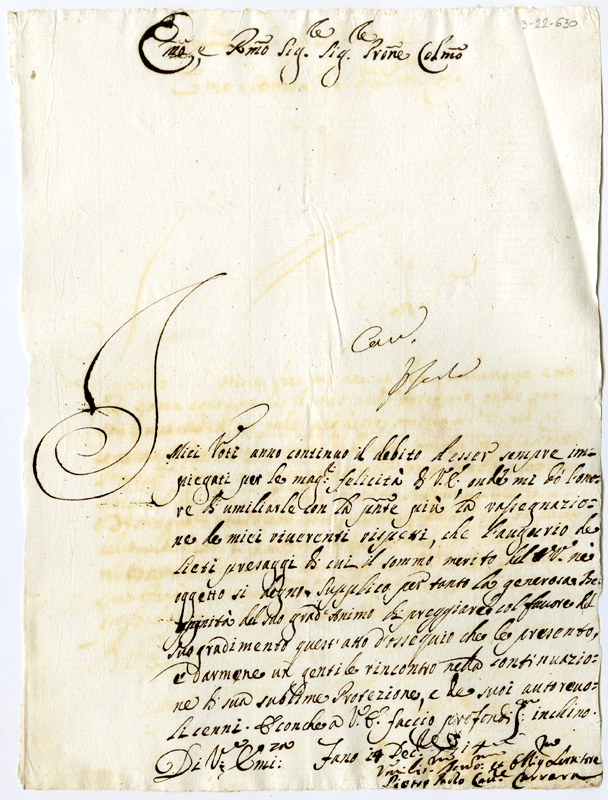 3-22-630
Emo, e Rmo Sig.re Sig.re Prone Colmo
Cav.
I Miei Voti anno continuo il debito d'esser sempre im-
piegati per le mag.ri felicità di V.E. onde mi dò l'ono-
re di umiliarle con la pñte più la rassegnazio-
ne de miei riverenti rispetti, che l'augurio de
lieti presaggi di cui il sommo merito dell' E.V. nè
oggetto si degno. Supplico per tanto la generosa Be-
nignità del suo grad.e Animo di preggiare col favore del
suo gradimento quest' atto d'ossequio che le presento,
e darmene un gentile rincontro nella continuazio-
ne di sua sublime Protezione, e de suoi autorevo-
li cenni. E con che a V.E. faccio profondis.o inchino.
Di V.ra Emi.za Fano 14 Dec.re 1714
Um.mo Dev.mo et Obblig.mo Servitore
Pietro Paolo Cav.e Carrara